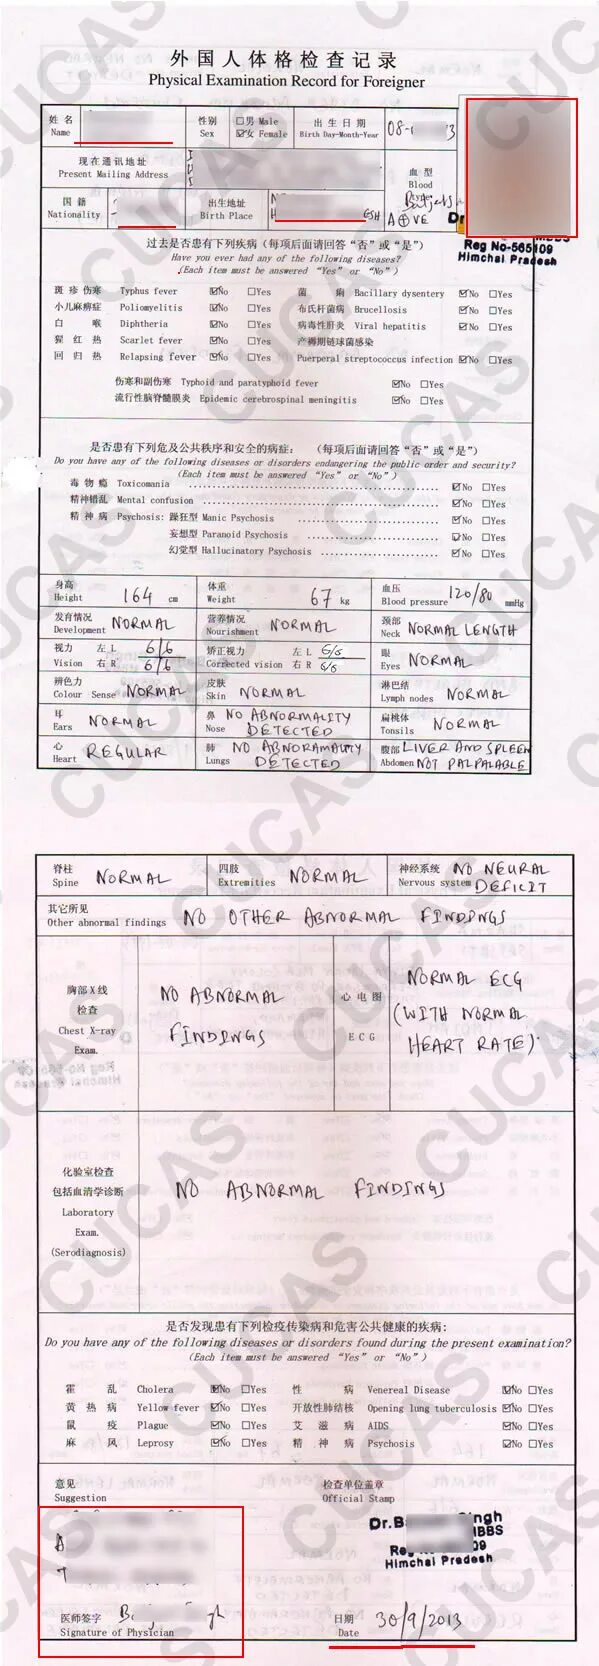 外国人体格检查记录
Physical Examination Record for Foreigner
姓名 Name 性别 Sex □男 Male ☑女 Female 出生日期 Birth Day-Month-Year 08-
现在通讯地址 Present Mailing Address 血型 Blood
国籍 Nationality 出生地址 Birth Place ESH A⊕VE
Dr. MBBS
Reg No-565109
Himchal Pradesh
过去是否患有下列疾病(每项后面请回答“否”或“是”)
Have you ever had any of the following diseases?
(Each item must be answered “Yes” or “No”)
斑疹伤寒 Typhus fever ☑No □Yes 菌痢 Bacillary dysentery ☑No □Yes
小儿麻痹症 Poliomyelitis ☑No □Yes 布氏杆菌病 Brucellosis ☑No □Yes
白喉 Diphtheria ☑No □Yes 病毒性肝炎 Viral hepatitis ☑No □Yes
猩红热 Scarlet fever ☑No □Yes 产褥期链球菌感染
回归热 Relapsing fever ☑No □Yes Puerperal streptococcus infection ☑No □Yes
伤寒和副伤寒 Typhoid and paratyphoid fever ☑No □Yes
流行性脑脊髓膜炎 Epidemic cerebrospinal meningitis ☑No □Yes
是否患有下列危及公共秩序和安全的病症: (每项后面请回答“否”或“是”)
Do you have any of the following diseases or disorders endangering the public order and security?
(Each item must be answered “Yes” or “No”)
毒物瘾 Toxicomania ☑No □Yes
精神错乱 Mental confusion ☑No □Yes
精神病 Psychosis: 躁狂型 Manic Psychosis ☑No □Yes
妄想型 Paranoid Psychosis ☑No □Yes
幻觉型 Hallucinatory Psychosis ☑No □Yes
身高 Height 164 cm 体重 Weight 67 kg 血压 Blood pressure 120/80 mmHg
发育情况 Development NORMAL 营养情况 Nourishment NORMAL 颈部 Neck NORMAL LENGTH
视力 Vision 左 L 6/6 右 R 6/6 矫正视力 Corrected vision 左 L 6/6 右 R 6/6 眼 Eyes NORMAL
辨色力 Colour Sense NORMAL 皮肤 Skin NORMAL 淋巴结 Lymph nodes NORMAL
耳 Ears NORMAL 鼻 Nose NO ABNORMALITY DETECTED 扁桃体 Tonsils NORMAL
心 Heart REGULAR 肺 Lungs NO ABNORAMALITY DETECTED 腹部 Abdomen LIVER AND SPLEEN NOT PALPALABLE
脊柱 Spine NORMAL 四肢 Extremities NORMAL 神经系统 Nervous system NO NEURAL DEFICIT
其它所见 Other abnormal findings NO OTHER ABNORMAL FINDINGS
胸部 X 线检查 Chest X-ray Exam. NO ABNORMAL FINDINGS 心电图 ECG NORMAL ECG (WITH NORMAL HEART RATE).
化验室检查
包括血清学诊断
Laboratory Exam. (Serodiagnosis) NO ABNORMAL FINDINGS
是否发现患有下列检疫传染病和危害公共健康的疾病:
Do you have any of the following diseases or disorders found during the present examination?
(Each item must be answered “Yes” or “No”)
霍乱 Cholera ☑No □Yes 性病 Venereal Disease ☑No □Yes
黄热病 Yellow fever ☑No □Yes 开放性肺结核 Opening lung tuberculosis ☑No □Yes
鼠疫 Plague ☑No □Yes 艾滋病 AIDS ☑No □Yes
麻风 Leprosy ☑No □Yes 精神病 Psychosis ☑No □Yes
意见 Suggestion 检查单位盖章 Official Stamp
Dr. Singh
MBBS
Reg 109
Himchal Pradesh
医师签字 Signature of Physician 日期 Date 30/9/2013
CUCAS